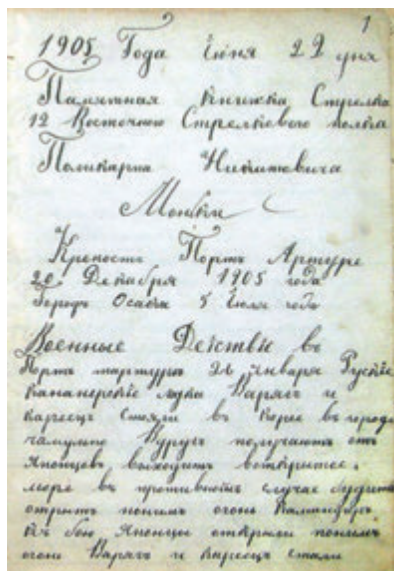 1
1905 Года Іюня 22 дня
Памятная Книжка Стрелка
12 Восточного Стрелкового полка
Поликарпа Никитовича
Крепость Порт Артуре
20 Декабря 1905 года
Осада 5 Іюля года
Военные Действіе в
Порт 26 Января Рускіе
лодки Варягъ и
Кареецъ Стояли въ Корее въ городе
чамулпо получаютъ отъ
Японцевъ выходить воткрытое
море въ противномъ случае будить
открытъ понимъ огонь
къ бою Японцы открыли понимъ
огонь Варягъ и Кареецъ стали